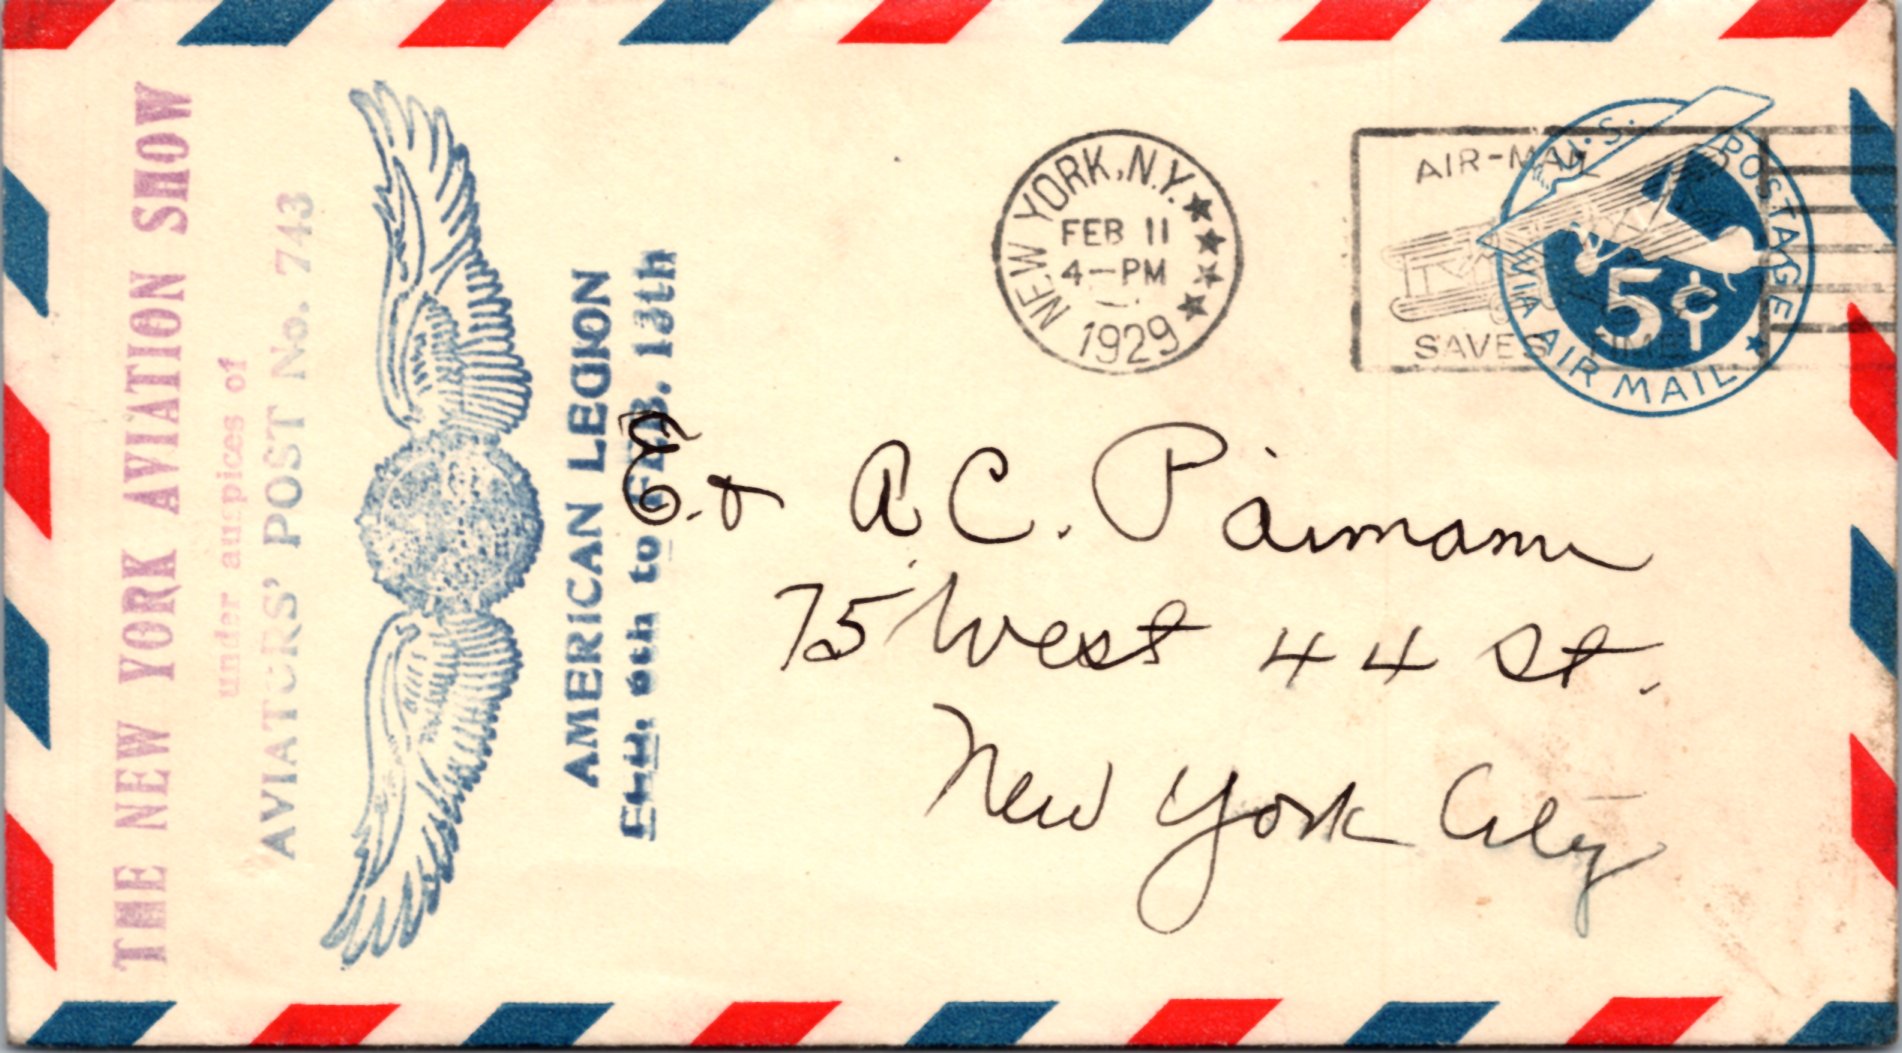 THE NEW YORK AVIATION SHOW
under auspices of
AVIATORS' POST No. 743
AMERICAN LEGION
FEB. 6th to FEB. 13th
NEW YORK, N.Y.
FEB 11
4-PM
1929
AIR-MAIL
SAVES TIME
U.S. POSTAGE
5¢
VIA AIR MAIL
E. & A. C.
75 West 44 St.
New York City